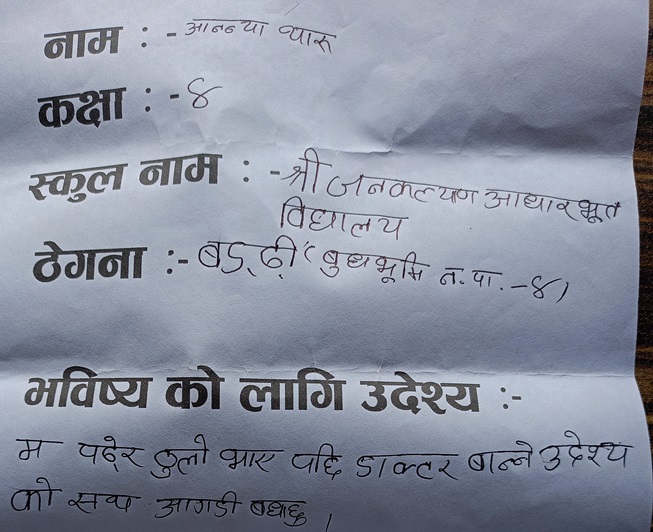 नाम : - आनन्या थारू
कक्षा : - ४
स्कुल नाम : - श्री जनकल्यण आधारभूत
विद्यालय
ठेगना :- बड्ढी (बुद्धभूमि न.पा. -४)
भविष्य को लागि उदेश्य :-
म पढेर ठुलो भाए पछि डाक्टर बान्ने उदेश्य
को साथ आगडी बधछु।